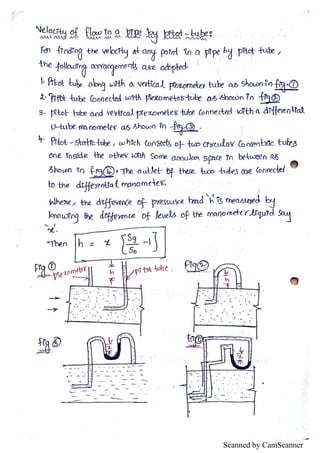 Velocity of Flow in a pipe by pitot-tube:
For finding the velocity at any point in a pipe by pitot tube,
the following arrangements are adopted.
1. Pitot tube along with a vertical piezometer tube as shown in fig-①
2. Pitot tube connected with piezometer tube as shown in fig②
3. pitot tube and vertical piezometer tube connected with a differential
U-tube manometer as shown in -fig③.
4. Pitot-static tube, which consists of two circular concentric tubes
one inside the other with some annular space in between as
shown in fig④. The outlet of these two tubes are connected
to the differential manometer.
Where, the difference of pressure head 'h' is measured by
knowing the difference of levels of the manometer liquid say
'x'.
Then h = x [Sg/So - 1]
Fig① piezometer h pitot tube.
Fig②
h
Fig③ x
Fig④
x
Scanned by CamScanner